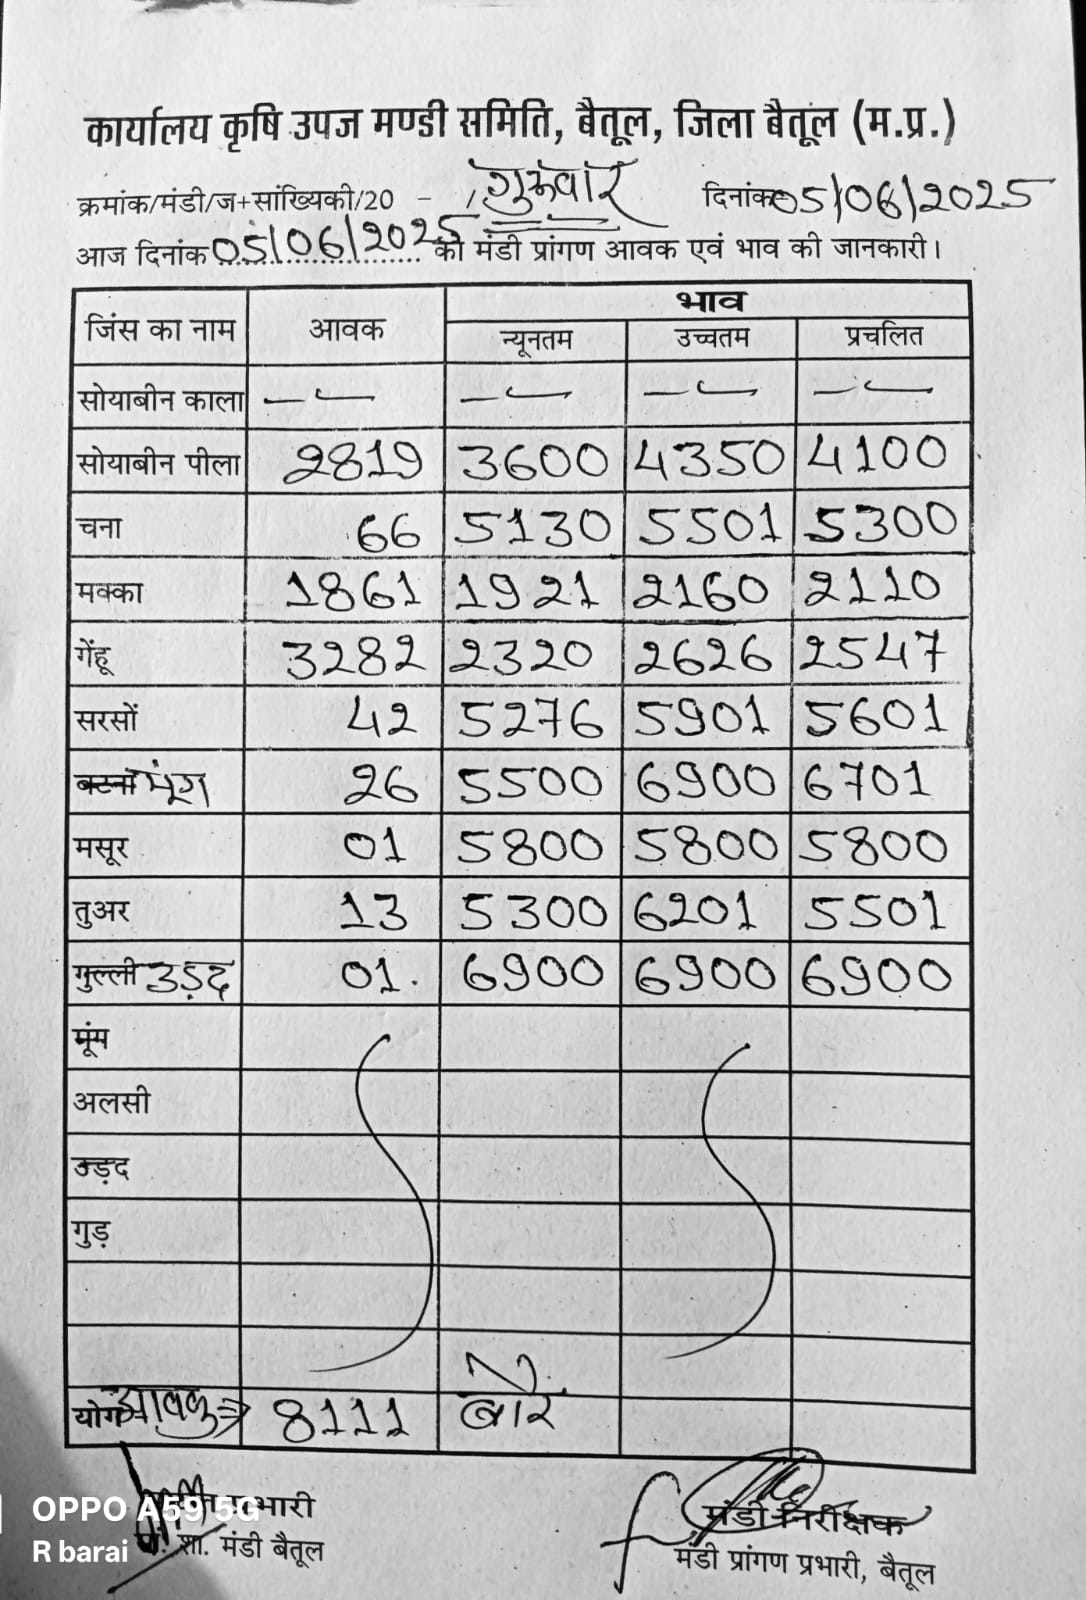 कार्यालय कृषि उपज मण्डी समिति, बैतूल, जिला बैतूल (म.प्र.)
क्रमांक/मंडी/ज+सांख्यिकी/20 - / गुरूवार दिनांक 05/06/2025
आज दिनांक 05/06/2025 को मंडी प्रांगण आवक एवं भाव की जानकारी।
जिंस का नाम आवक भाव
न्यूनतम उच्चतम प्रचलित
सोयाबीन काला — — — —
सोयाबीन पीला 2819 3600 4350 4100
चना 66 5130 5501 5300
मक्का 1861 1921 2160 2110
गेंहू 3282 2320 2626 2547
सरसों 42 5276 5901 5601
मूंग 26 5500 6900 6701
मसूर 01 5800 5800 5800
तुअर 13 5300 6201 5501
गुल्ली उड़द 01. 6900 6900 6900
मूंग
अलसी
उड़द
गुड़
योग आवक → 8111 बोरे
प्रभारी मंडी निरीक्षक
शा. मंडी बैतूल मंडी प्रांगण प्रभारी, बैतूल
OPPO A59 5G
R barai